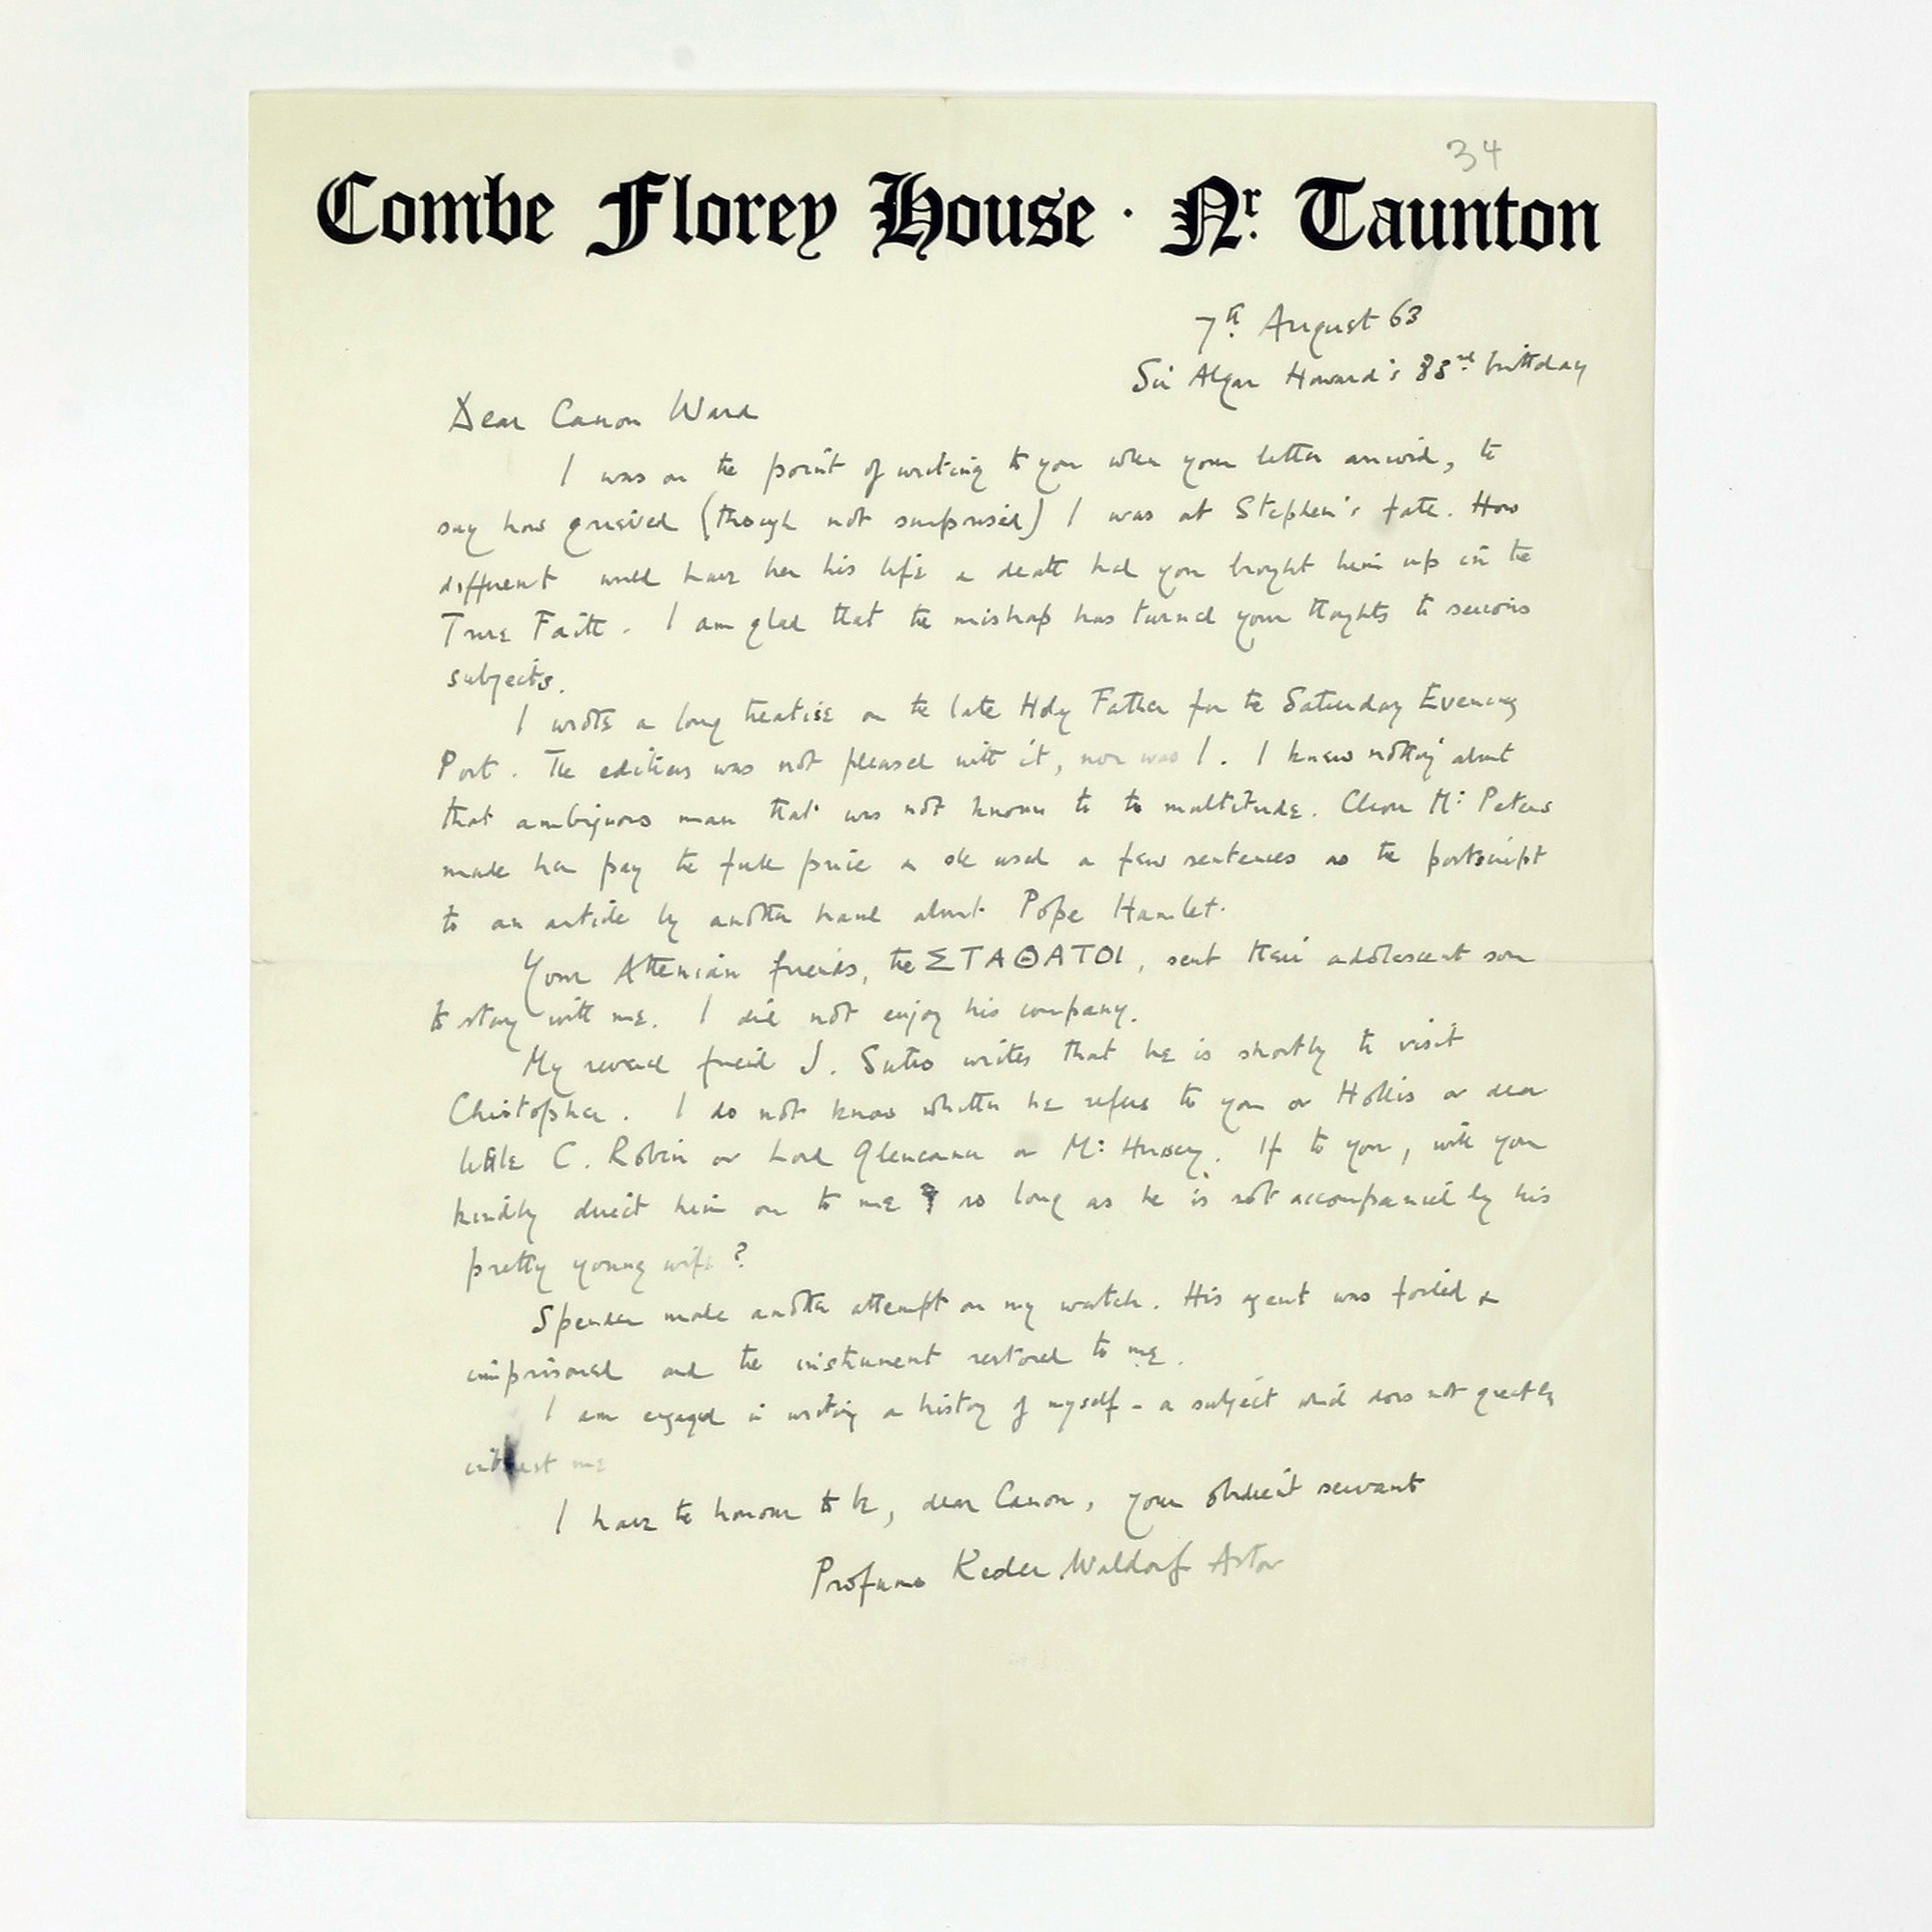 34
Combe Florey House · Nr. Taunton
7th August 63
Sir Algar Howard's 83rd birthday
Dear Canon Ward
I was on the point of writing to you when your letter arrived, to
say how grieved (though not surprised) I was at Stephen's fate. How
different would have been his life & death had you brought him up in the
True Faith. I am glad that the mishap has turned your thoughts to serious
subjects.
I wrote a long treatise on the late Holy Father for the Saturday Evening
Post. The editress was not pleased with it, nor was I. I knew nothing about
that ambiguous man that was not known to the multitude. Clever Mr Peters
made her pay the full price & she used a few sentences as the postscript
to an article by another hand about Pope Hamlet.
Your Athenian friends, the ΣΤΑΘΑΤΟΙ, sent their adolescent son
to stay with me. I did not enjoy his company.
My revered friend J. Sutro writes that he is shortly to visit
Christopher. I do not know whether he refers to you or Hollis or dear
little C. Robin or Lord Glenconner or Mr Hussey. If to you, will you
kindly direct him on to me so long as he is not accompanied by his
pretty young wife?
Spender made another attempt on my watch. His agent was foiled &
imprisoned and the instrument restored to me.
I am engaged in writing a history of myself - a subject which does not greatly
interest me
I have the honour to be, dear Canon, your obedient servant
Profumo Keeler Waldorf Astor